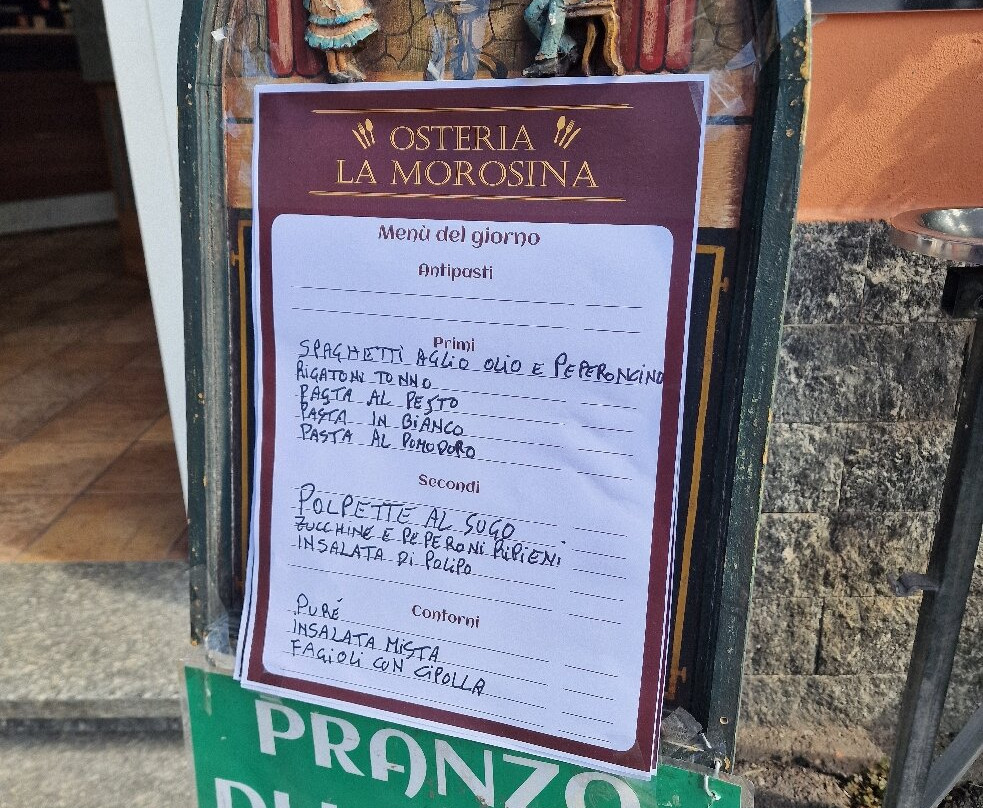 OSTERIA
LA MOROSINA
Menù del giorno
Antipasti
Primi
SPAGHETTI AGLIO OLIO E PEPERONCINO
RIGATONI TONNO
PASTA AL PESTO
PASTA IN BIANCO
PASTA AL POMODORO
Secondi
POLPETTE AL SUGO
ZUCCHINE E PEPERONI RIPIENI
INSALATA DI POLIPO
Contorni
PURÉ
INSALATA MISTA
FAGIOLI CON CIPOLLA
PRANZO